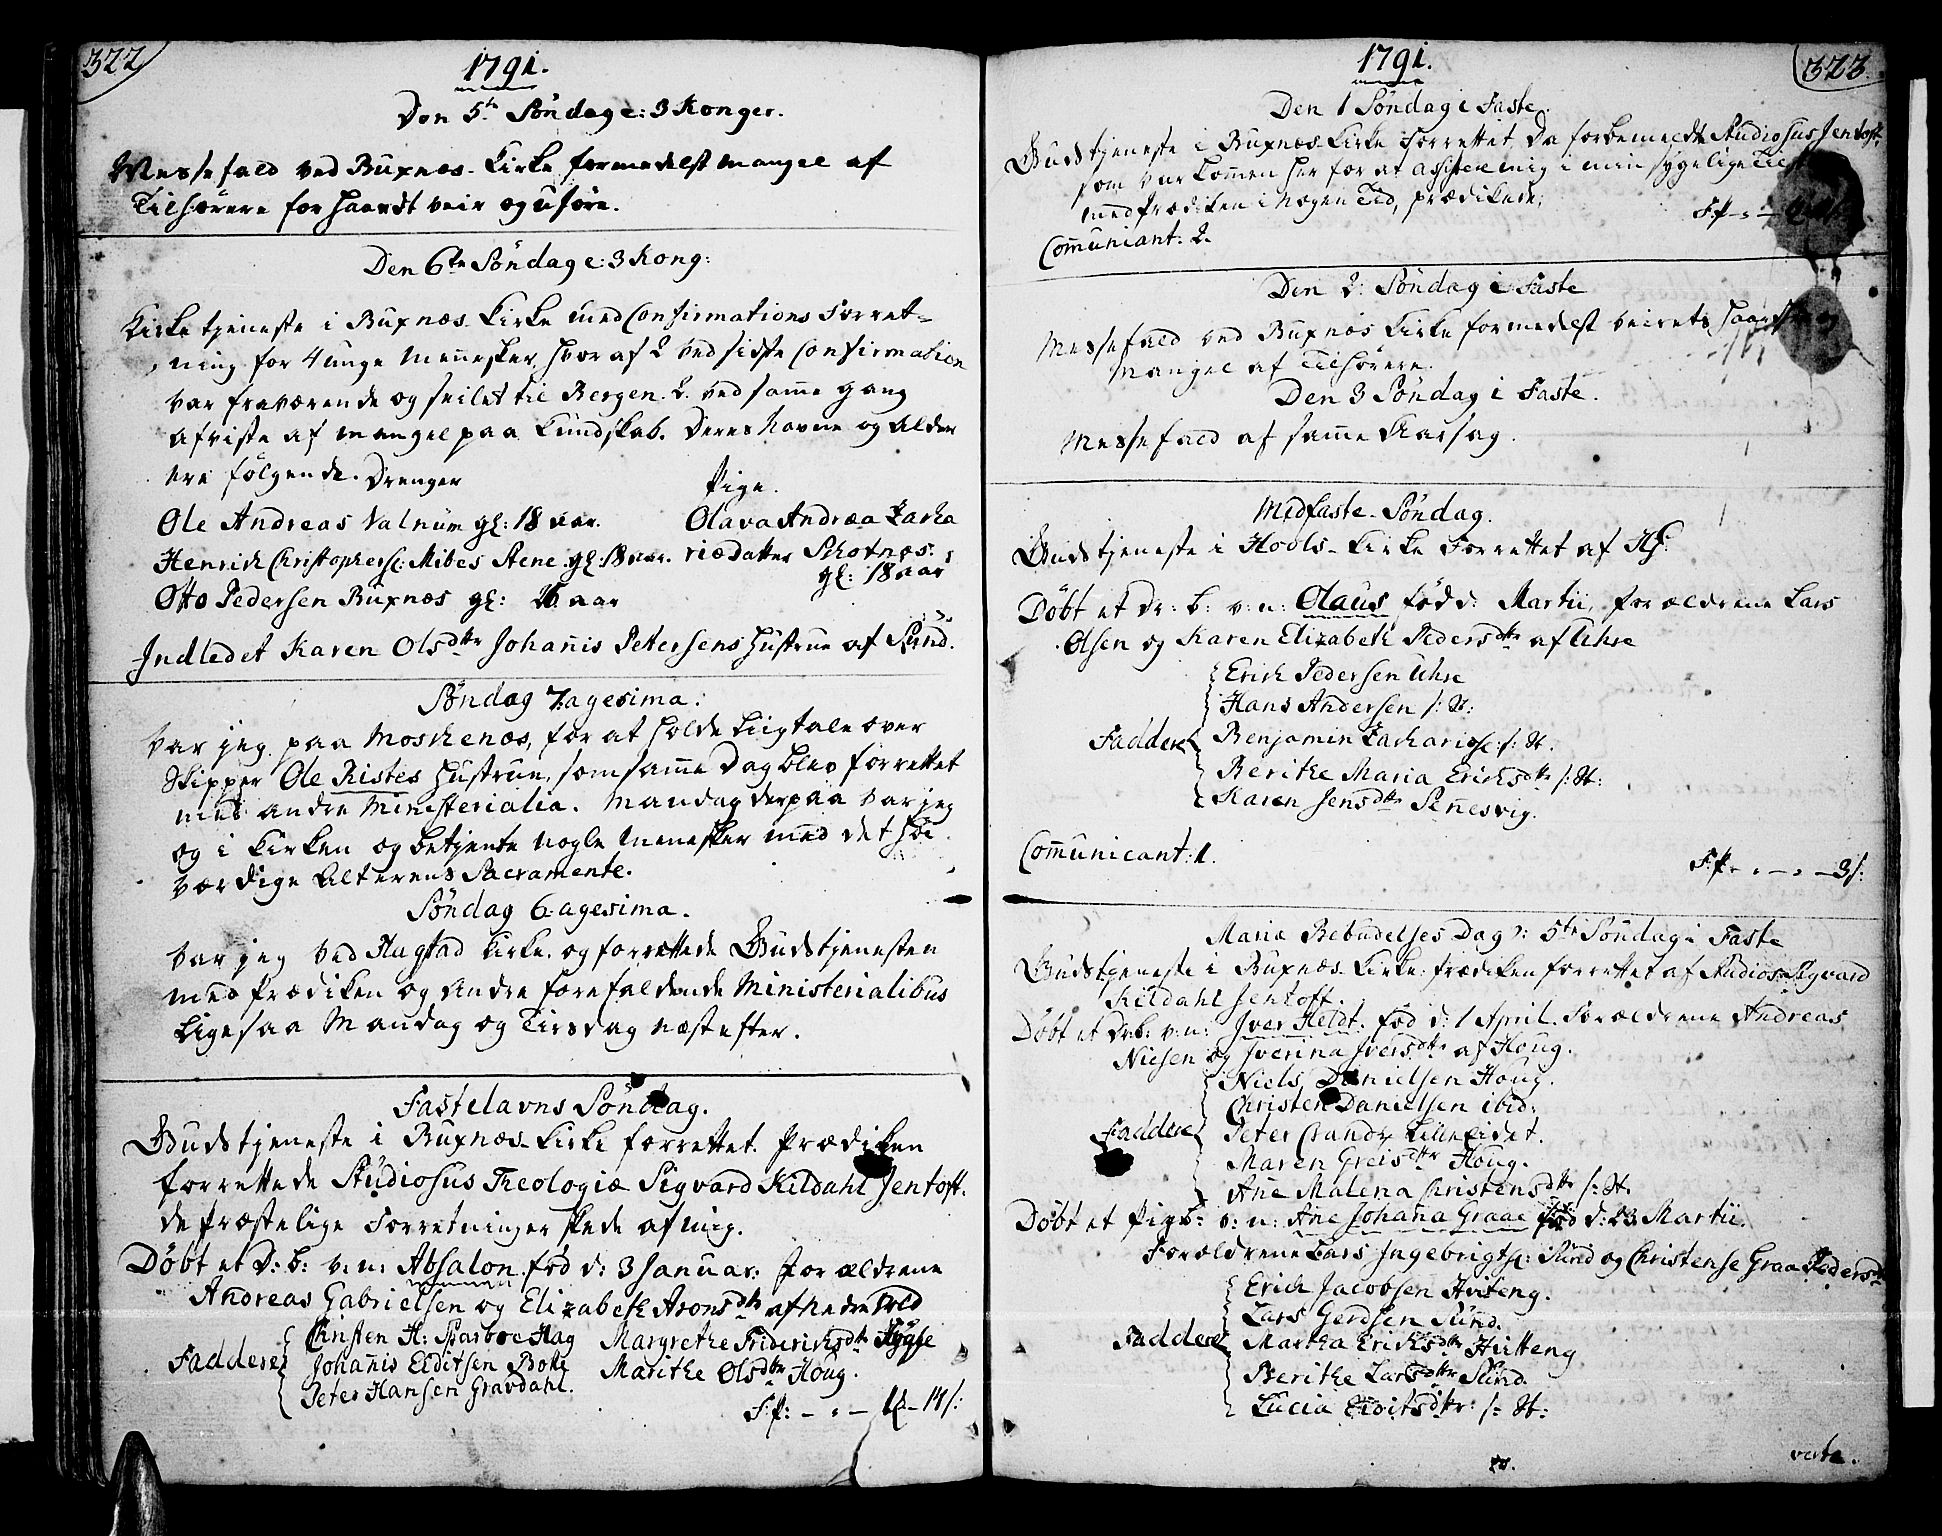 322
1791.
Den 5te Söndag e: 3 Konger.
Messefald ved Buxnæs Kirke formedelst mangel af
Tilhörere for haardt veir og uföre.
Den 6te Söndag e: 3 Kong:
Kirketjeneste i Buxnæs Kirke med Confirmations Forret-
ning for 4 unge Menesker, hvor af 2 ved sidste Confirmation
var fraværende og seilet til Bergen. 2 ved samme gang
afviste af mangel paa Kundskab. Deres Navne og Alder
ere fölgende. Drenger
Pige.
Ole Andreas Valnum gl: 18 aar.
Olava Andræa Zacha
Henrich Christophersc: Mibes Stene gl: 18 aar.
riædatter Skotnæs:
gl: 18 aar
Otto Pedersen Buxnæs gl: 16 aar
Indledet Karen Olsdttr Johanis Petersens Hustrue af Sund.
Söndag 7agesima:
Var jeg paa Moskenæs, for at holde Liigtale over
Skipper Ole Ristes Hustrue, som same Dag blev forrettet
med andre Ministerialia. Mandag derpaa var jeg
og i Kirken og betjente nogle Menesker med det höi
værdige Alterens Sacramente.
Söndag 6agesima.
Var jeg ved Hagstad Kirke og forrettede Gudstjenesten
med Prædiken og andre forefaldende Ministerialibus
ligesaa Mandag og Tirsdag næst efter.
Fastelavns Söndag.
Gudstjeneste i Buxnæs Kirke forrettet. Prædiken
forrettede Studiosus Theologiæ Sigvard Kildahl Jentoft.
de Præstelige Forretninger skede af mig.
Döbt et D: b: v: n: Absalon fød d: 3 Januar: Forældrene
Andreas Gabrielsen og Elizabeth Aronsdtr af Nedre Vold
Christen H: Skarboe Hag
Margrethe Friderichsdtr Hygge
Faddere
Johanis Elditsen Bohe
Marithe Olsdttr Houg.
Peter Hansen Gravdahl.
F:p: - " - 1 - 14 s:
323.
1791.
Den 1 Söndag i Faste.
Gudstjeneste i Buxnæs Kirke Forrettet, Da forbemeldte Studiosus Jentoft
som var komen her for at assistere mig i min sygelige
med Prædiken i nogen Tid, prædikede.
F:p - " -
Comuniant: 2.
Den 2: Söndag i Faste
Messefald ved Buxnæs Kirke formedelst veirets og
Mangel af Tilhörere.
Den 3 Söndag i Faste.
Messefald af same Aarsag.
Midfaste-Söndag.
Gudstjeneste i Hools-Kirke Forrettet af
Döbt et Dr: b: v: n: Olaus föd d: Martii, forældrene Lars
Olsen og Karen Elizabeth Pedersdtr af Uhre
Erich Pedersen Uhre
Hans Andersen s: St:
Faddere
Benjamin Zachariæs: s: St.
Berithe Maria Erichsdtr s: St:
Karen Jensdtr Senesvig.
Comunicant: 1.
F:p. " - " - 3 s:
Mariæ Bebudelses Dag 5te Söndag i Faste
Gudstjeneste i Buxnæs Kirke: Prædiken forrettet af Studios: Sigvard
Kildahl Jentoft.
Döbt et Dr:b: v: n: Iver Heldt. fød d: 1 April. Forældrene Andreas
Nielsen og Iverina Iversdtr af Houg.
Niels Danielsen Houg.
Christen Danielsen ibid:
Faddere
Peter Lilleeidet.
Maren Greisdtr Houg.
Ane Malena Christensdtr s: St.
Döbt et Pigeb: v: n: Ane Johana Graae föd d: 23 Martii.
Forældrene Lars Ingebrigtsc: Sund og Christense Graa Pedersdtr
Erich Jacobsen Hutteng.
Lars Gerdsen Sund.
Faddere
Martha Erichsdtr Hutteng
Berithe Larsdttr Sund.
Lucia Elditsdtr: s: St:
verte.